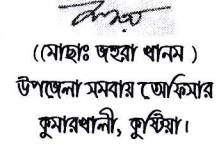 ((মোছাঃ জহুরা খানম )
উপজেলা সমবায় অফিসার
কুমারখালী, কুষ্টিয়া।